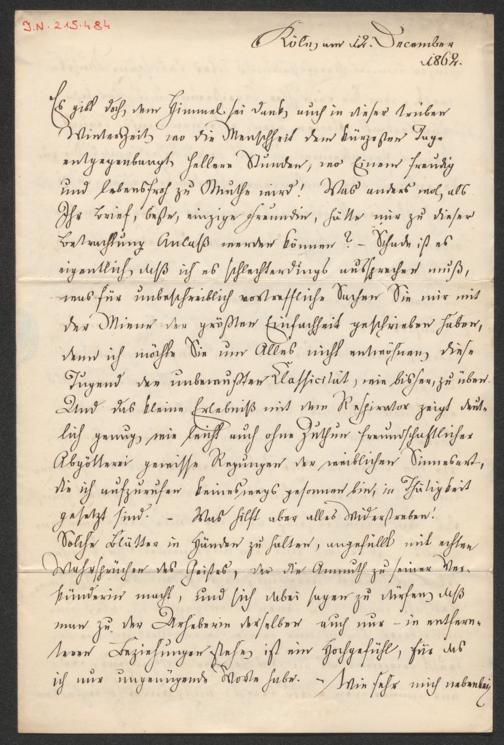 J.N. 215.484
Köln, am 12. December
1862.
Es gibt doch, dem Himmel sei Dank, auch in dieser trüben
Winterzeit, wo die Menschheit dem kürzesten Tage
entgegenbangt, hellere Stunden, wo Einem freudig
und lebensfroh zu Muthe wird! Was anders wol, als
Ihr Brief, beste, einzige Freundin, hätte mir zu dieser
Betrachtung Anlaß werden können? – Schade ist es
eigentlich, daß ich es schlechterdings aussprechen muß,
was für unbeschreiblich vortreffliche Sachen Sie mir mit
der Miene der größten Einfachheit geschrieben haben,
denn ich möchte Sie um Alles nicht entwöhnen, diese
Tugend der unbewußten Klassicität, wie bisher, zu üben.
Und das kleine Erlebniß mit dem Respirator zeigt deut-
lich genug, wie leicht auch ohne Zuthun freundschaftlicher
Abgötterei gewisse Regungen der weiblichen Sinnesart,
die ich aufzurufen keineswegs gesonnen bin, in Thätigkeit
gesetzt sind. – Was hilft aber alles Widerstreben!
Solche Blätter in Händen zu halten, angefüllt mit echten
Wahrsprüchen des Geistes, der die Anmuth zu seiner Ver-
künderin macht, und sich dabei sagen zu dürfen, daß
man zu der Urheberin derselben auch nur – in entfern-
teren Beziehungen stehe, ist ein Hochgefühl, für das
ich nur ungenügende Worte habe. – Wie sehr mich nebenbei